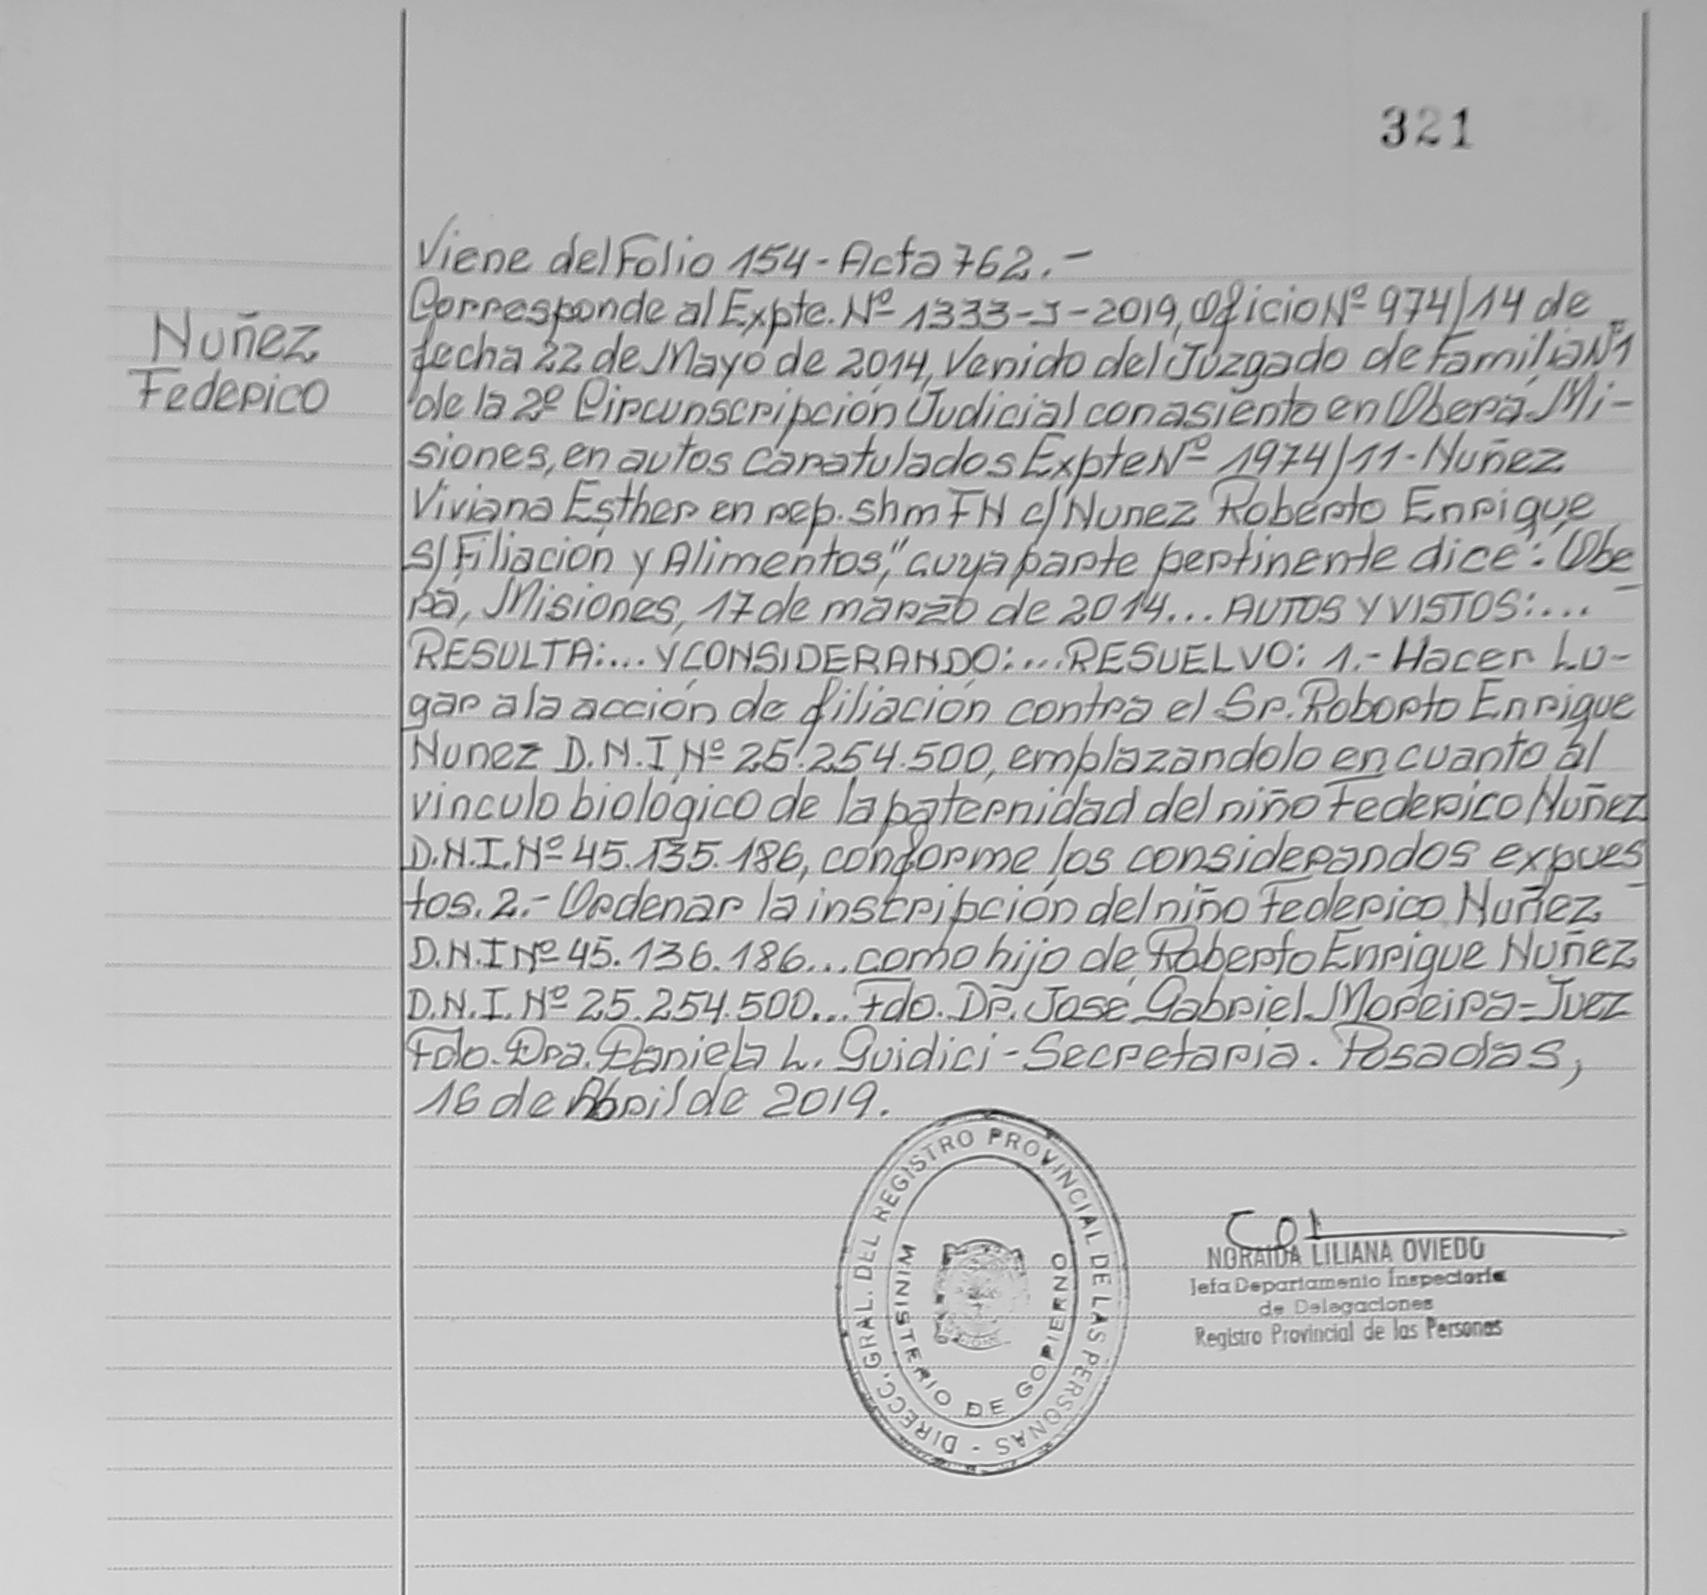 321
Viene del Folio 154 - Acta 762.-
Nuñez
Federico
Corresponde al Expte. Nº 1333-J-2019, Oficio Nº 974/14 de
fecha 22 de Mayo de 2014, Venido del Juzgado de Familia Nº1
de la 2º Circunscripción Judicial con asiento en Oberá Mi-
siones, en autos caratulados Expte Nº 1974/11 - Nuñez
Viviana Esther en rep. shm FN c/ Nunez Roberto Enrique
S/ Filiación y Alimentos," cuya parte pertinente dice: Obe
rá, Misiones, 17 de marzo de 2014... AUTOS Y VISTOS:...
RESULTA:... Y CONSIDERANDO:... RESUELVO: 1.- Hacer Lu-
gar a la acción de filiación contra el Sr. Roberto Enrique
Nunez D.N.I Nº 25.254.500, emplazandolo en cuanto al
vinculo biológico de la paternidad del niño Federico Nuñez
D.N.I. Nº 45.135.186, conforme los considerandos expues
tos. 2.- Ordenar la inscripción del niño Federico Nuñez
D.N.I Nº 45.136.186... como hijo de Roberto Enrique Nuñez
D.N.I. Nº 25.254.500... Fdo. Dr. José Gabriel Moreira - Juez
Fdo. Dra. Daniela L. Guidici - Secretaria. Posadas,
16 de Abril de 2019.
DIRECC. GRAL. DEL REGISTRO PROVINCIAL DE LAS PERSONAS -
MINISTERIO DE GOBIERNO
NORAIDA LILIANA OVIEDO
Jefa Departamento Inspectoría
de Delegaciones
Registro Provincial de las Personas